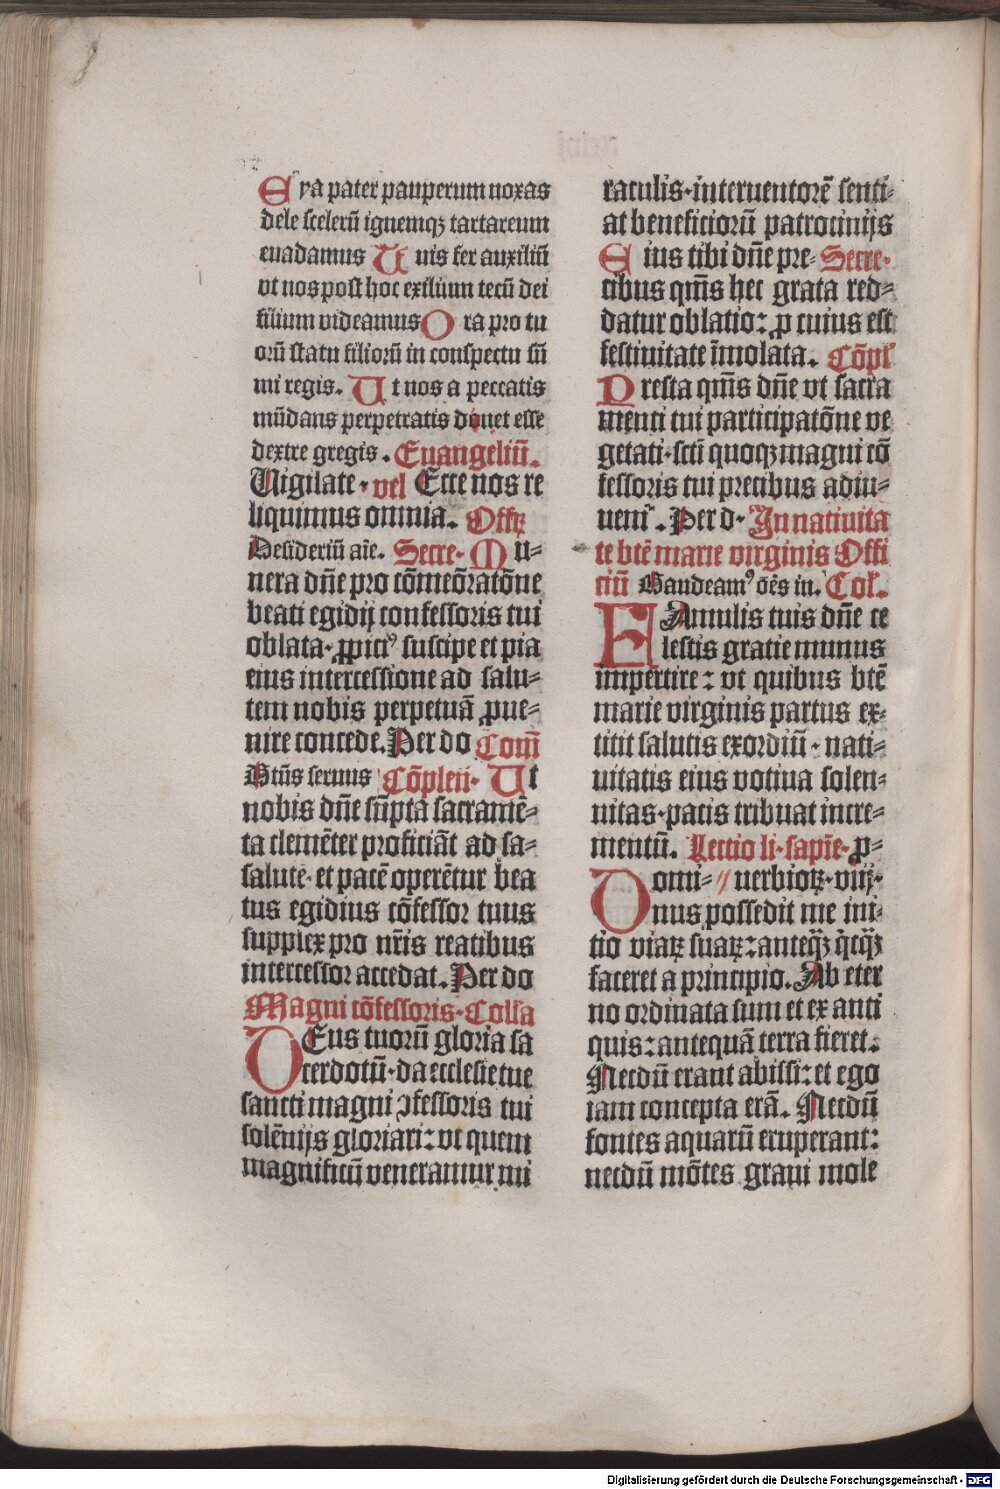 Eya pater pauperum noxas
dele scelerū ignemqꝫ tartareum
euadamus Unis fer auxiliū
vt nos post hoc exilium tecū dei
filium videamus Ora pro tu
orū statu filiorū in conspectu sū
mi regis. Ut nos a peccatis
mūdans perpetratis donet esse
dextre gregis. Euangeliū.
Vigilate. vel Ecce nos re
liquimus omnia. Offꝝ
Desideriū aīe. Secre. Mu⸗
nera dn̄e pro cōmeōratōne
beati egidij confessoris tui
oblata. ꝓpiciꝰ suscipe et pia
eius intercessione ad salu⸗
tem nobis perpetuā ꝓue⸗
nire concede. Per do Com̄
Btūs seruus Cōplen. Ut
nobis dn̄e sūpta sacramē⸗
ta clemēter proficiāt ad sa⸗
salutē. et pacē operētur bea
tus egidius cōfessor tuus
supplex pro nr̄is reatibus
intercessor accedat. Per do
Magni cōfessoris. Colla
DEus tuorū gloria sa
cerdotū. da ecclesie tue
sancti magni ɔfessoris tui
solēnijs gloriari: vt quem
magnificū veneramur mi
raculis. interuentorē senti⸗
at beneficiorū patrocinijs
Eius tibi dn̄e pre⸗ Secre.
cibus qm̄s hec grata red⸗
datur oblatio: ꝓ cuius est
festiuitate īmolata. Cōpl
Presta qm̄s dn̄e vt sacra
menti tui participatōne ve
getati. scti quoqꝫ magni cō
fessoris tui precibus adiu⸗
uem̄. Per d. In natiuita
te btē marie virginis Offi
ciū Gaudeamꝰ oēs in. Col.
FAmulis tuis dn̄e ce
lestis gratie munus
impertire: vt quibus btē
marie virginis partus ex⸗
titit salutis exordiū. nati⸗
uitatis eius votiua solen⸗
nitas. pacis tribuat incre⸗
mentū. Lectio li. sapīe. ꝓ⸗
Domi⸗ // uerbioꝝ. viij.
nus possedit me ini⸗
tio viaꝝ suaꝝ: anteqꝫ̄ q̇cqꝫ̄
faceret a principio. Ab eter
no ordinata sum et ex anti
quis: antequā terra fieret.
Necdū erant abissi: et ego
iam concepta erā. Necdū
fontes aquarū eruperant:
necdū mōtes graui mole
Digitalisierung gefördert durch die Deutsche Forschungsgemeinschaft - DFG